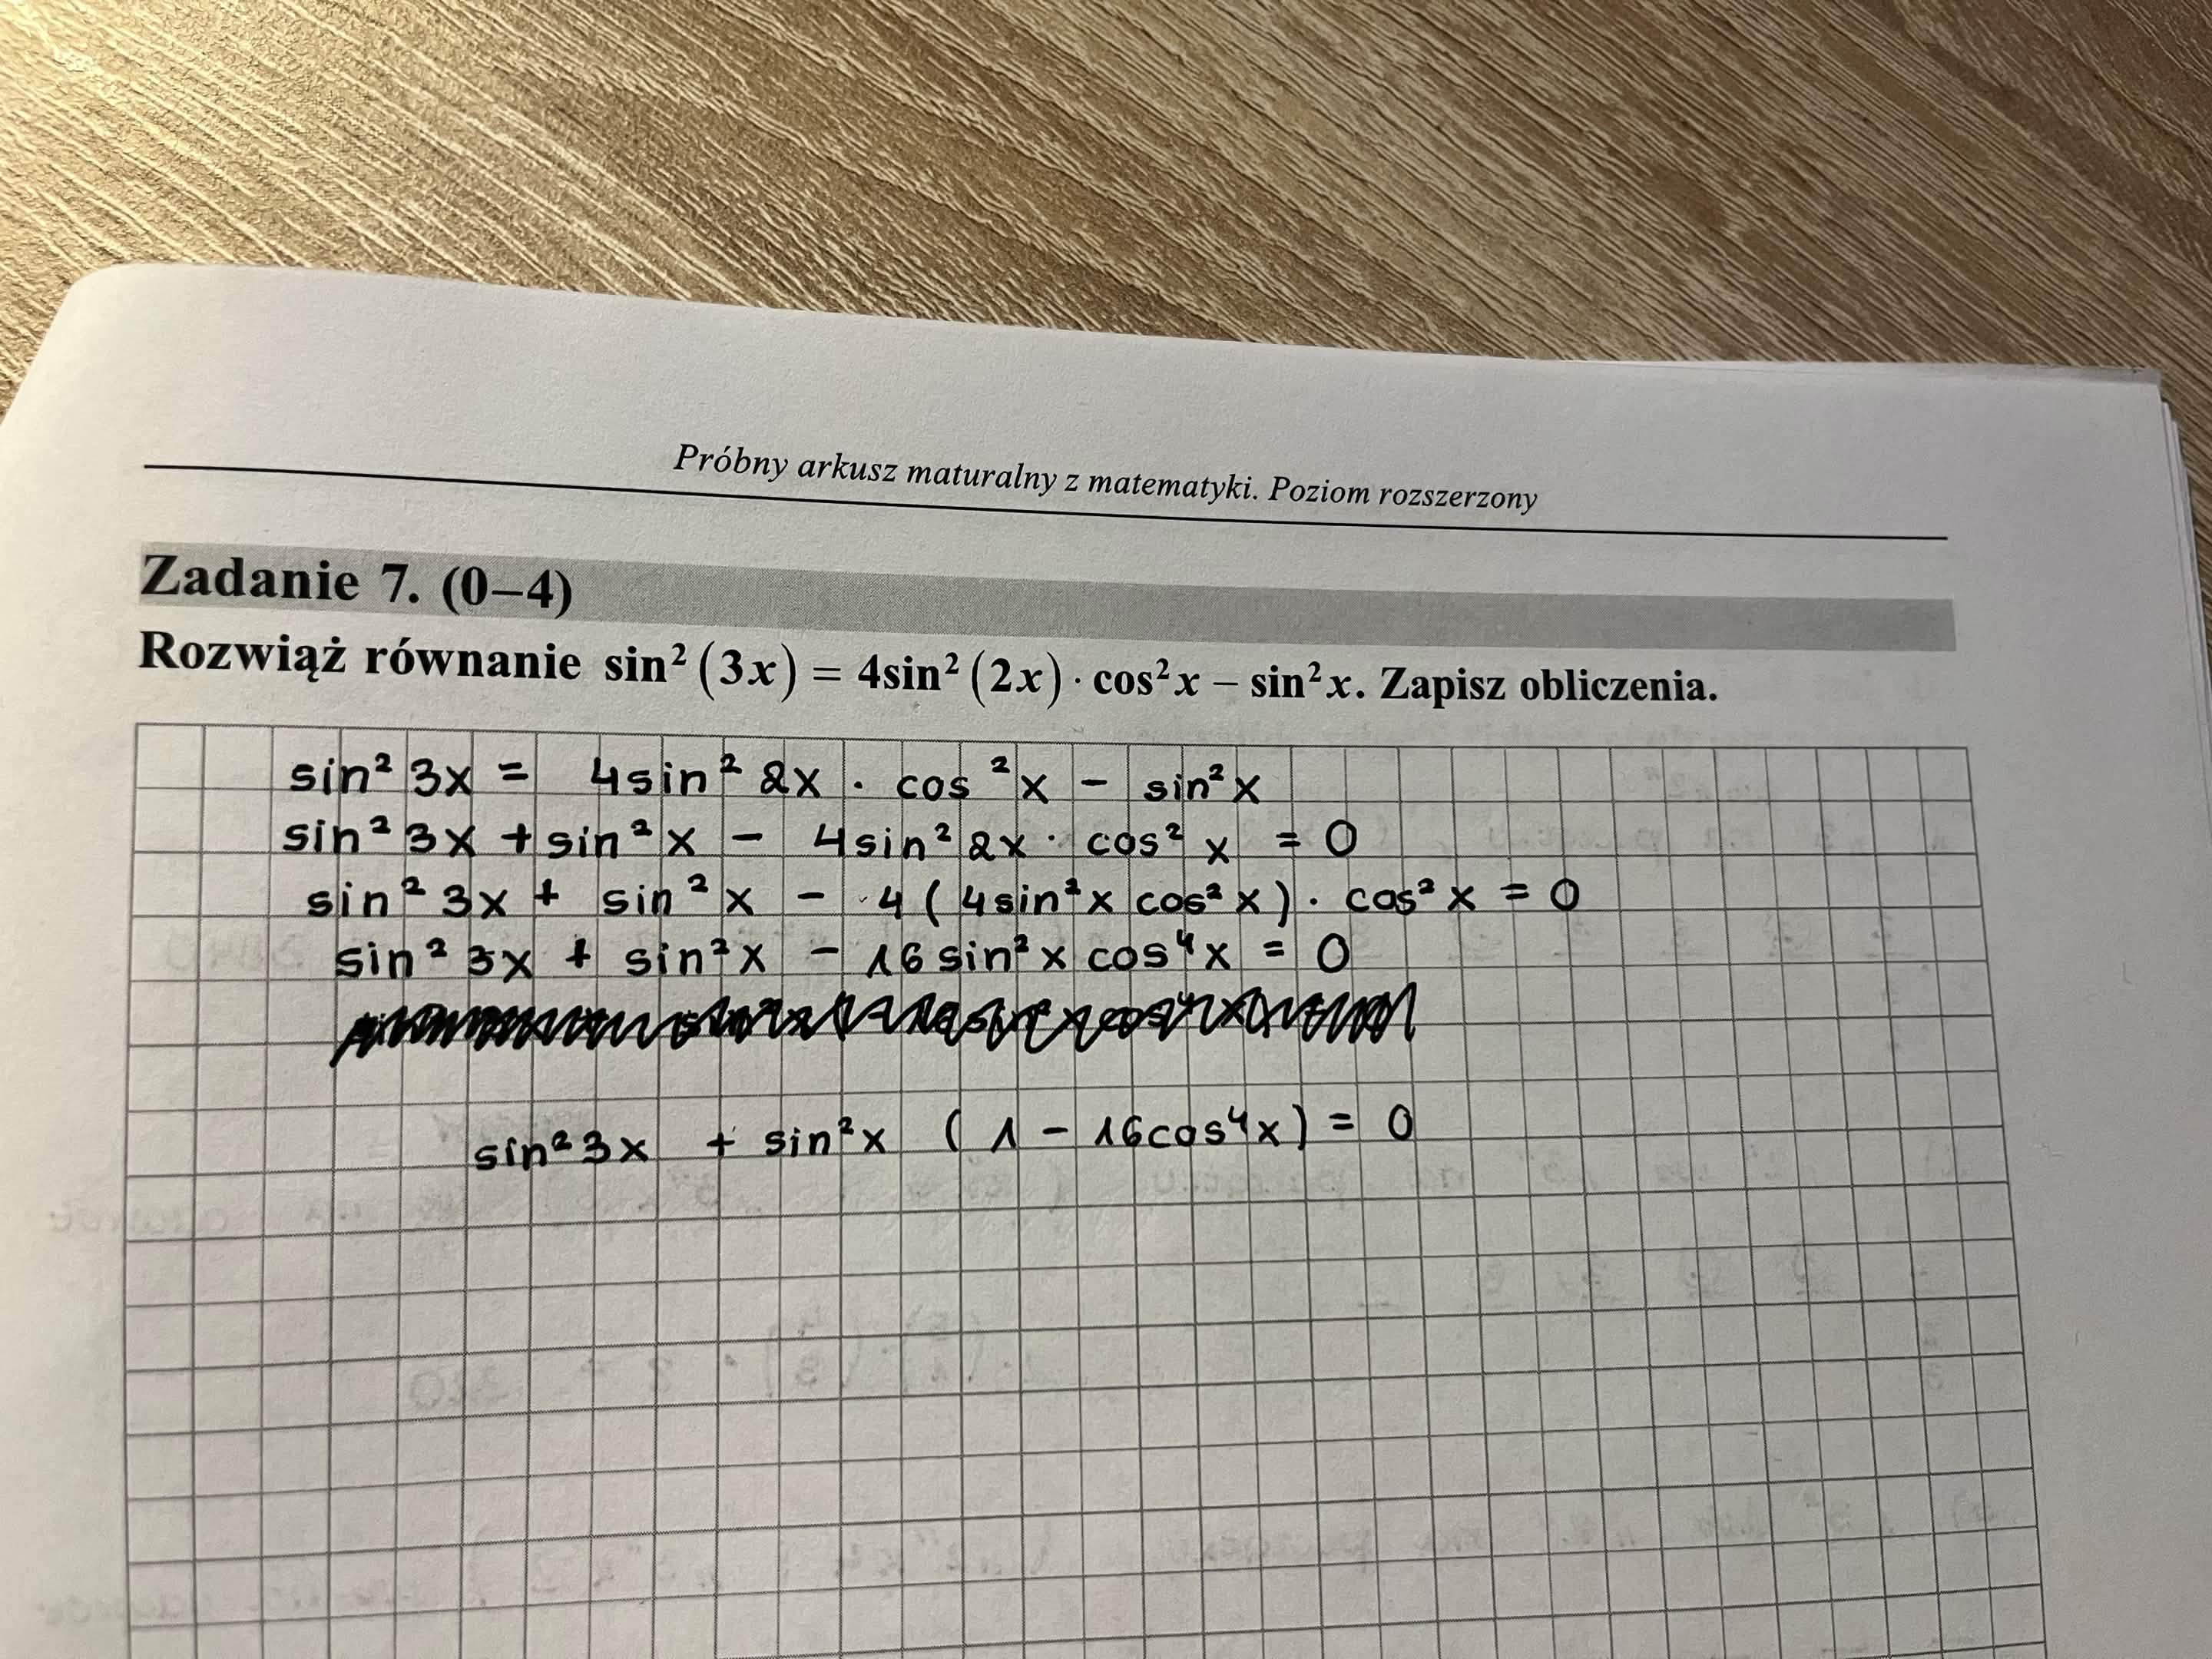 Próbny arkusz maturalny z matematyki. Poziom rozszerzony
Zadanie 7. (0–4)
Rozwiąż równanie sin² (3x) = 4sin² (2x) · cos²x – sin²x. Zapisz obliczenia.
sin² 3x = 4sin² 2x · cos²x – sin²x
sin² 3x + sin²x – 4sin² 2x · cos² x = 0
sin² 3x + sin²x – 4 (4sin²x cos²x) · cos²x = 0
sin² 3x + sin²x – 16sin²x cos⁴x = 0
sin² 3x + sin²x (1 – 16cos⁴x) = 0